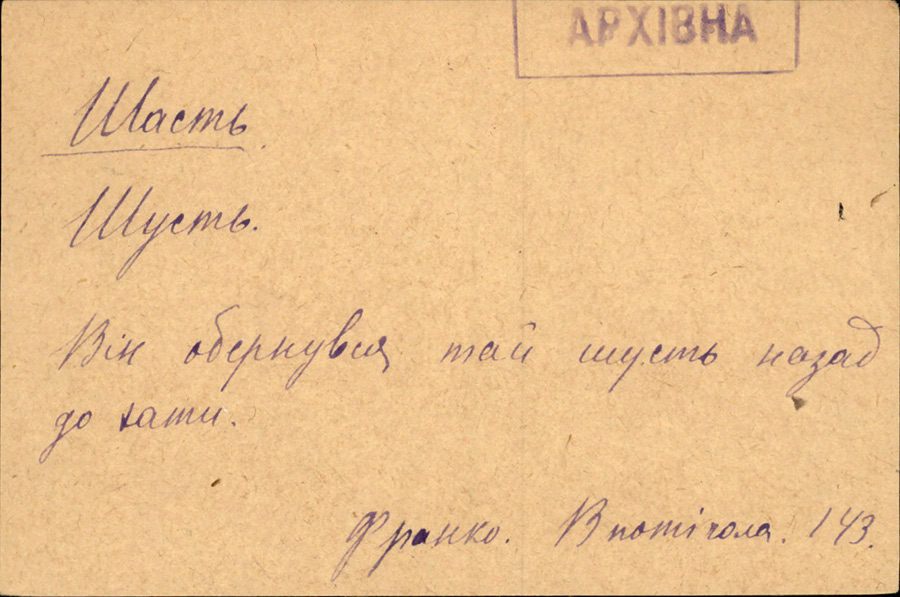 АРХІВНА
Шасть
Шусть.
Він обернувся тай шусть назад
до хати.
Франко. В поті чола. 143.